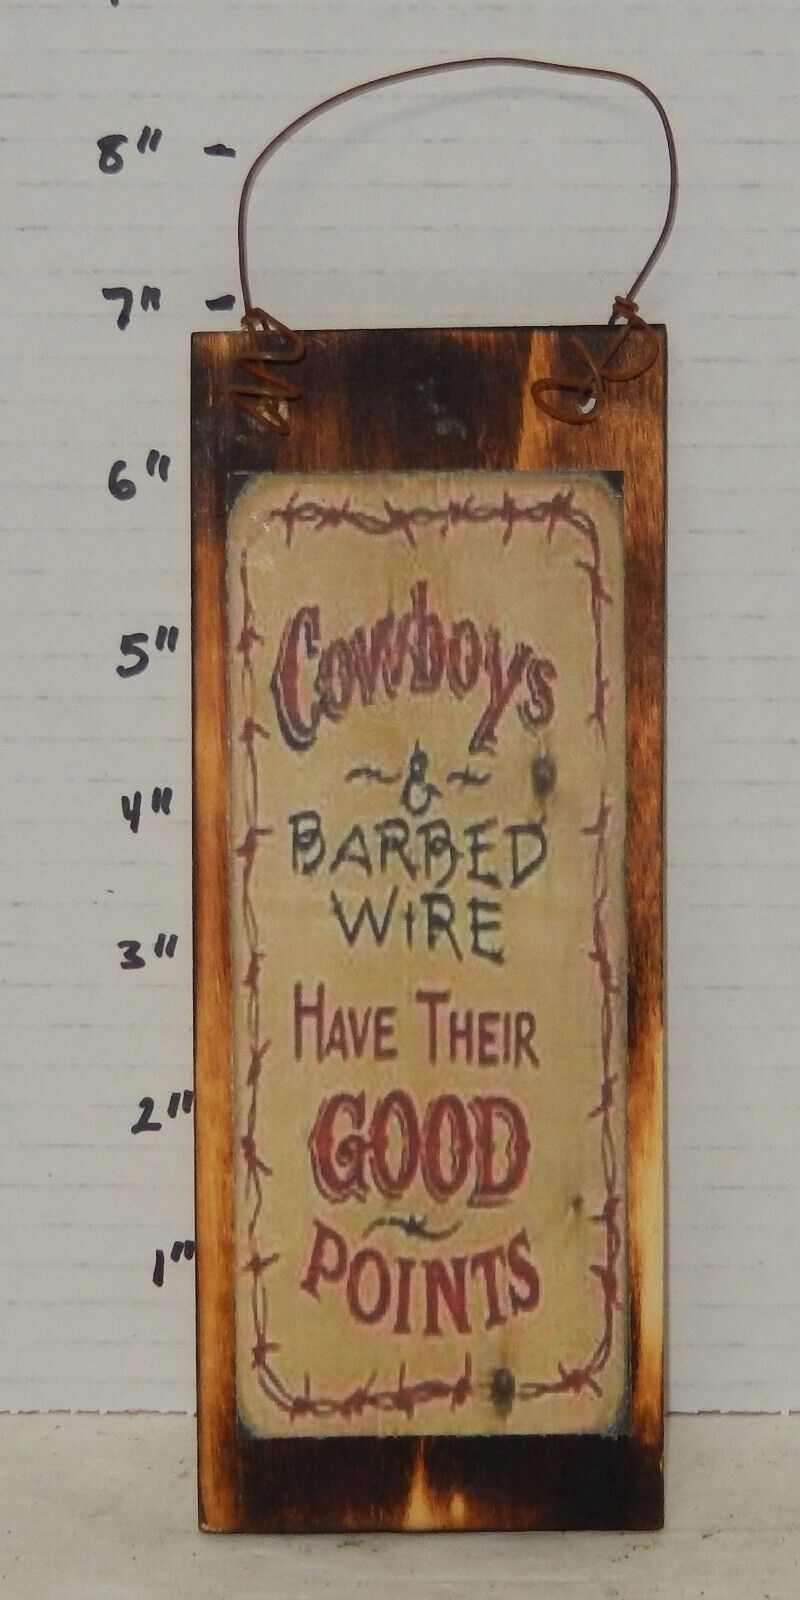 8"
7"
6"
5"
4"
3"
2"
1"
Cowboys
~&~
BARBED
WIRE
HAVE THEIR
GOOD
POINTS